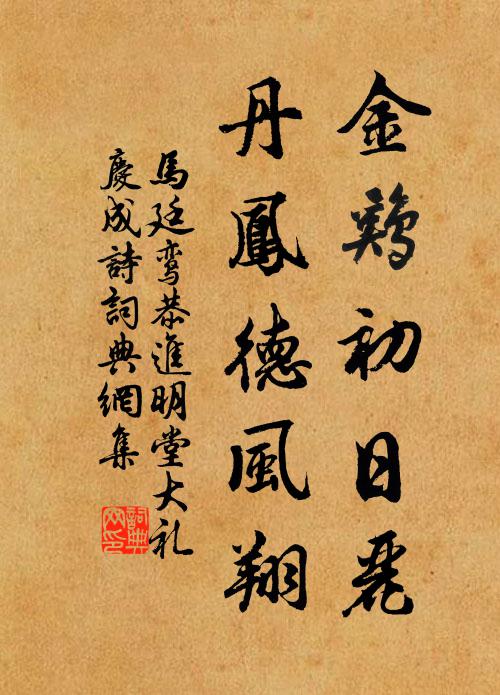 金鷄初日麗
丹鳳德風翔
馬廷鸾恭進明堂大礼
慶成詩詞典網集
詞典网印